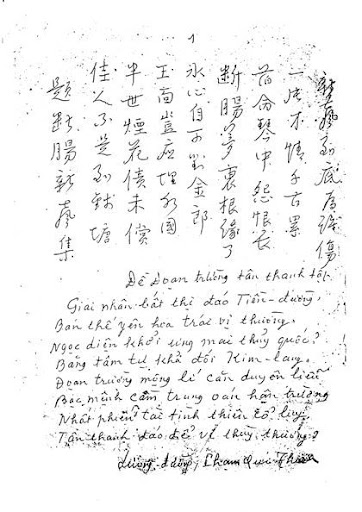 1
題斷腸新聲集
佳人不是到錢塘
半世煙花債未償
玉面豈应埋水國
氷心自可對金郎
断腸夢裏根緣了
薄命琴中怨恨長
一片才情千古累
新聲到底為誰傷
Đề Đoạn trường tân thanh tập
Giai nhân bất thị đáo Tiền-đường,
Bán thế yên hoa trái vị thường.
Ngọc diện khởi ưng mai thủy quốc?
Băng tâm tự khả đối Kim-lang.
Đoạn trường mộng lí căn duyên liễu
Bạc mệnh cầm trung oán hận trường
Nhất phiến tài tình thiên cổ lụy,
Tân thanh đáo để vị thùy thương?
Lương-đường Phạm Quí Thích